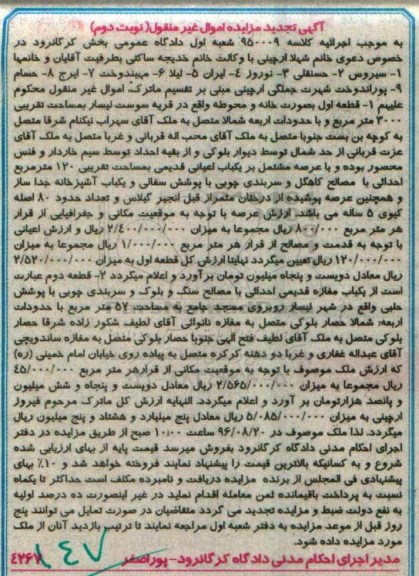 آگهی تجدید مزایده اموال غیر منقول( نوبت دوم)
به موجب اجرائیه کلاسه ۹۵۰۰۰۹ شعبه اول دادگاه عمومی بخش کرگانرود در
خصوص دعوی خانم شهلا ارچینی با وکالت خانم خدیجه ساکتی بطرفیت آقایان و خانمها
۱- سیروس ۲- حسنقلی ۳- نوروز ۴- ایران ۵- لیلا ۶- مهیندوخت ۷- ایرج ۸- حسام
۹- پوراندوخت شهرت جملگی ارچینی مبنی بر تقسیم ماترک، اموال غیر منقول محکوم
علیهم ۱- قطعه اول بصورت خانه و محوطه واقع در قریه سوست لیسار بمساحت تقریبی
۳۰۰۰ متر مربع و با حدودات اربعه شمالا متصل به ملک آقای سهراب نیکنام شرقا متصل
به کوچه بن بست جنوبا متصل به ملک آقای محب اله قربانی و غربا متصل به ملک آقای
عزت قربانی از حد شمال توسط دیوار بلوکی و از بقیه احداد توسط سیم خاردار و فنس
محصور بوده و با عرصه مشتمل بر یکباب اعیانی قدیمی بمساحت تقریبی ۱۲۰ مترمربع
احداثی با مصالح کاهگل و سربندی چوبی با پوشش سفالی و یکباب آشپزخانه جدا ساز
و همچنین عرصه پوشیده از درختان مثمراز قبل انجیر گیلاس و تعداد حدود ۸۰ اصله
کیوی ۵ ساله می باشند. ارزش عرصه با توجه به موقعیت مکانی و جغرافیایی از قرار
هر متر مربع ۸۰۰/۰۰۰ ریال مجموعا به میزان ۲/۴۰۰/۰۰۰/۰۰۰ ریال و ارزش اعیانی
با توجه به قدمت و مصالح از قرار هر متر مربع ۱/۰۰۰/۰۰۰ ریال مجموعا به میزان
۱۲۰/۰۰۰/۰۰۰ ریال تعیین میگردد نهایتا ارزش کل قطعه اول به میزان ۲/۵۲۰/۰۰۰/۰۰۰
ریال معادل دویست و پنجاه میلیون تومان برآورد و اعلام میگردد ۲- قطعه دوم عبارت
است از یکباب مغازه قدیمی احداثی با مصالح سنگ و بلوک و سربندی چوبی با پوشش
حلبی واقع در شهر لیسار روبروی مسجد جامع به مساحت ۵۷ متر مربع با حدودات
اربعه: شمالا حصار بلوکی متصل به مغازه نانوائی آقای لطیف شکور زاده شرقا حصار
بلوکی متصل به ملک آقای لطیف فتح الهی جنوبا حصار بلوکی متصل به مغازه ساندویچی
آقای عبداله غفاری و غربا دو دهنه کرکره متصل به پیاده روی خیابان امام خمینی (ره)
که ارزش ملک موصوف با توجه به موقعیت مکانی از قرارهر متر مربع ۴۵/۰۰۰/۰۰۰
ریال مجموعا به میزان ۲/۵۶۵/۰۰۰/۰۰۰ ریال معادل دویست و پنجاه و شش میلیون
و پانصد هزارتومان بر آورد و اعلام میگردد. النهایه ارزش کل ماترک مرحوم فیروز
ارچینی به میزان ۵/۰۸۵/۰۰۰/۰۰۰ ریال معادل پنج میلیارد و هشتاد و پنج میلیون ریال
میگردد. لذا ملک موصوف در ۹۶/۰۸/۲۰ ساعت ۱۰:۰۰ صبح از طریق مزایده در دفتر
اجرای احکام مدنی دادگاه کرگانرود بفروش میرسد قیمت پایه از بهای ارزیابی شده
شروع و به کسانیکه بالاترین قیمت را پیشنهاد نمایند فروخته خواهد شد و ۱۰٪ بهای
پیشنهادی فی المجلس از برنده مزایده دریافت و نامبرده مکلف است حداکثر تا یکماه
نسبت به پرداخت باقیمانده ثمن معامله اقدام نماید در غیر اینصورت ده درصد اولیه
به نفع دولت ضبط و مزایده تجدید می گردد متقاضیان در صورت تمایل می توانند پنج
روز قبل از موعد مزایده به دفتر شعبه اول مراجعه نمایند تا ترتیب بازدید آنان از ملک
مورد مزایده داده شود.
مدیر اجرای احکام مدنی دادگاه کرگانرود-پوراصغر
۴۲۶۷
۱۴۷